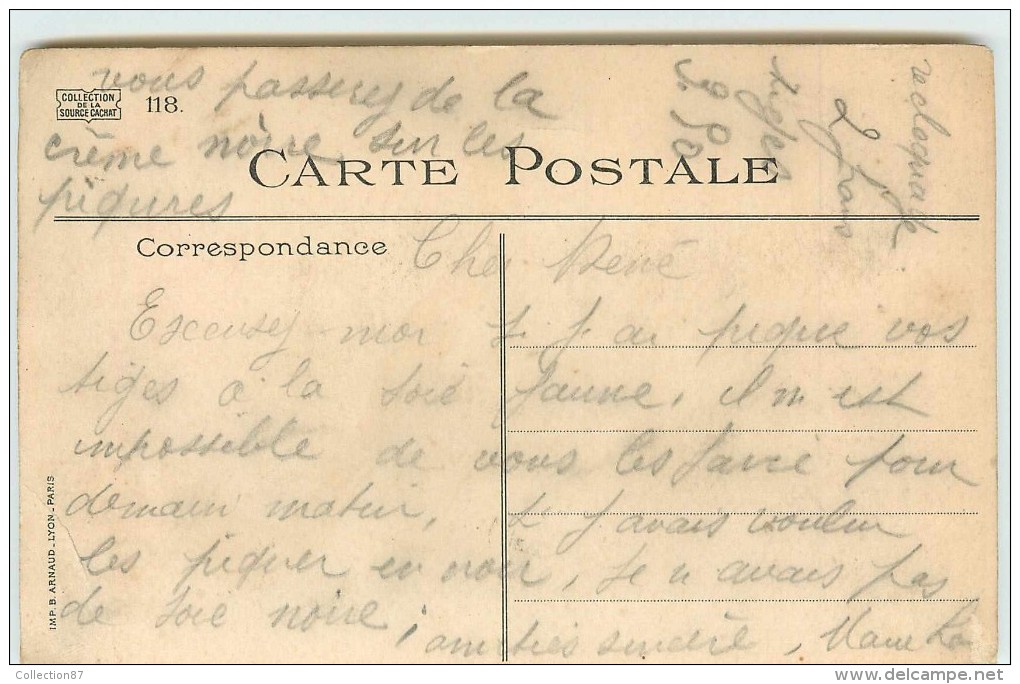 vous passerez de la
crème noire sur les
piqures
COLLECTION
DE LA
SOURCE CACHAT
118.
tiges
2 francs
CARTE POSTALE
Correspondance
Cher René
Excusez-moi si j'ai piqué vos
tiges à la soie jaune, il m'est
impossible de vous les faire pour
demain matin, si j'avais voulu
les piquer en noir, je n'avais pas
de soie noire,
amitiés sincère, Marie
IMP. B. ARNAUD - LYON - PARIS
Collection87
www.delcampe.net